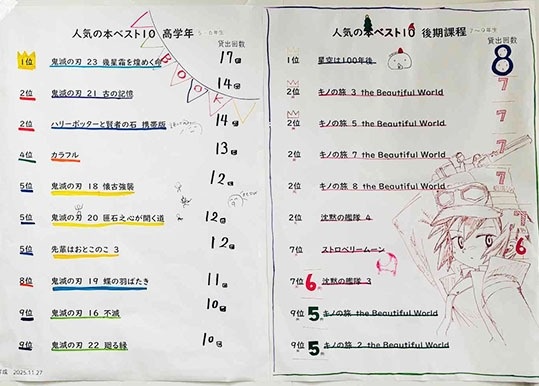 人気の本ベスト10 高学年 5~6年生
貸出回数
BOOK
1位 鬼滅の刃 23 幾星霜を煌めく命 17回
2位 鬼滅の刃 21 古の記憶 14回
2位 ハリーポッターと賢者の石 携帯版 14回
4位 カラフル 13回
5位 鬼滅の刃 18 懐古強襲 12回
5位 鬼滅の刃 20 匪石之心が開く道 12回
5位 先輩はおとこのこ 3 12回
8位 鬼滅の刃 19 蝶の羽ばたき 11回
9位 鬼滅の刃 16 不滅 10回
9位 鬼滅の刃 22 廻る縁 10回
2025.11.27
人気の本ベスト10 後期課程 7~9年生
貸出回数
1位 星空は100年後 8
2位 キノの旅 3 the Beautiful World 7
2位 キノの旅 5 the Beautiful World 7
2位 キノの旅 7 the Beautiful World 7
2位 キノの旅 8 the Beautiful World 7
2位 沈黙の艦隊 4 7
7位 ストロベリームーン 6
7位 沈黙の艦隊 3 6
9位 キノの旅 the Beautiful World 5
9位 キノの旅 2 the Beautiful World 5